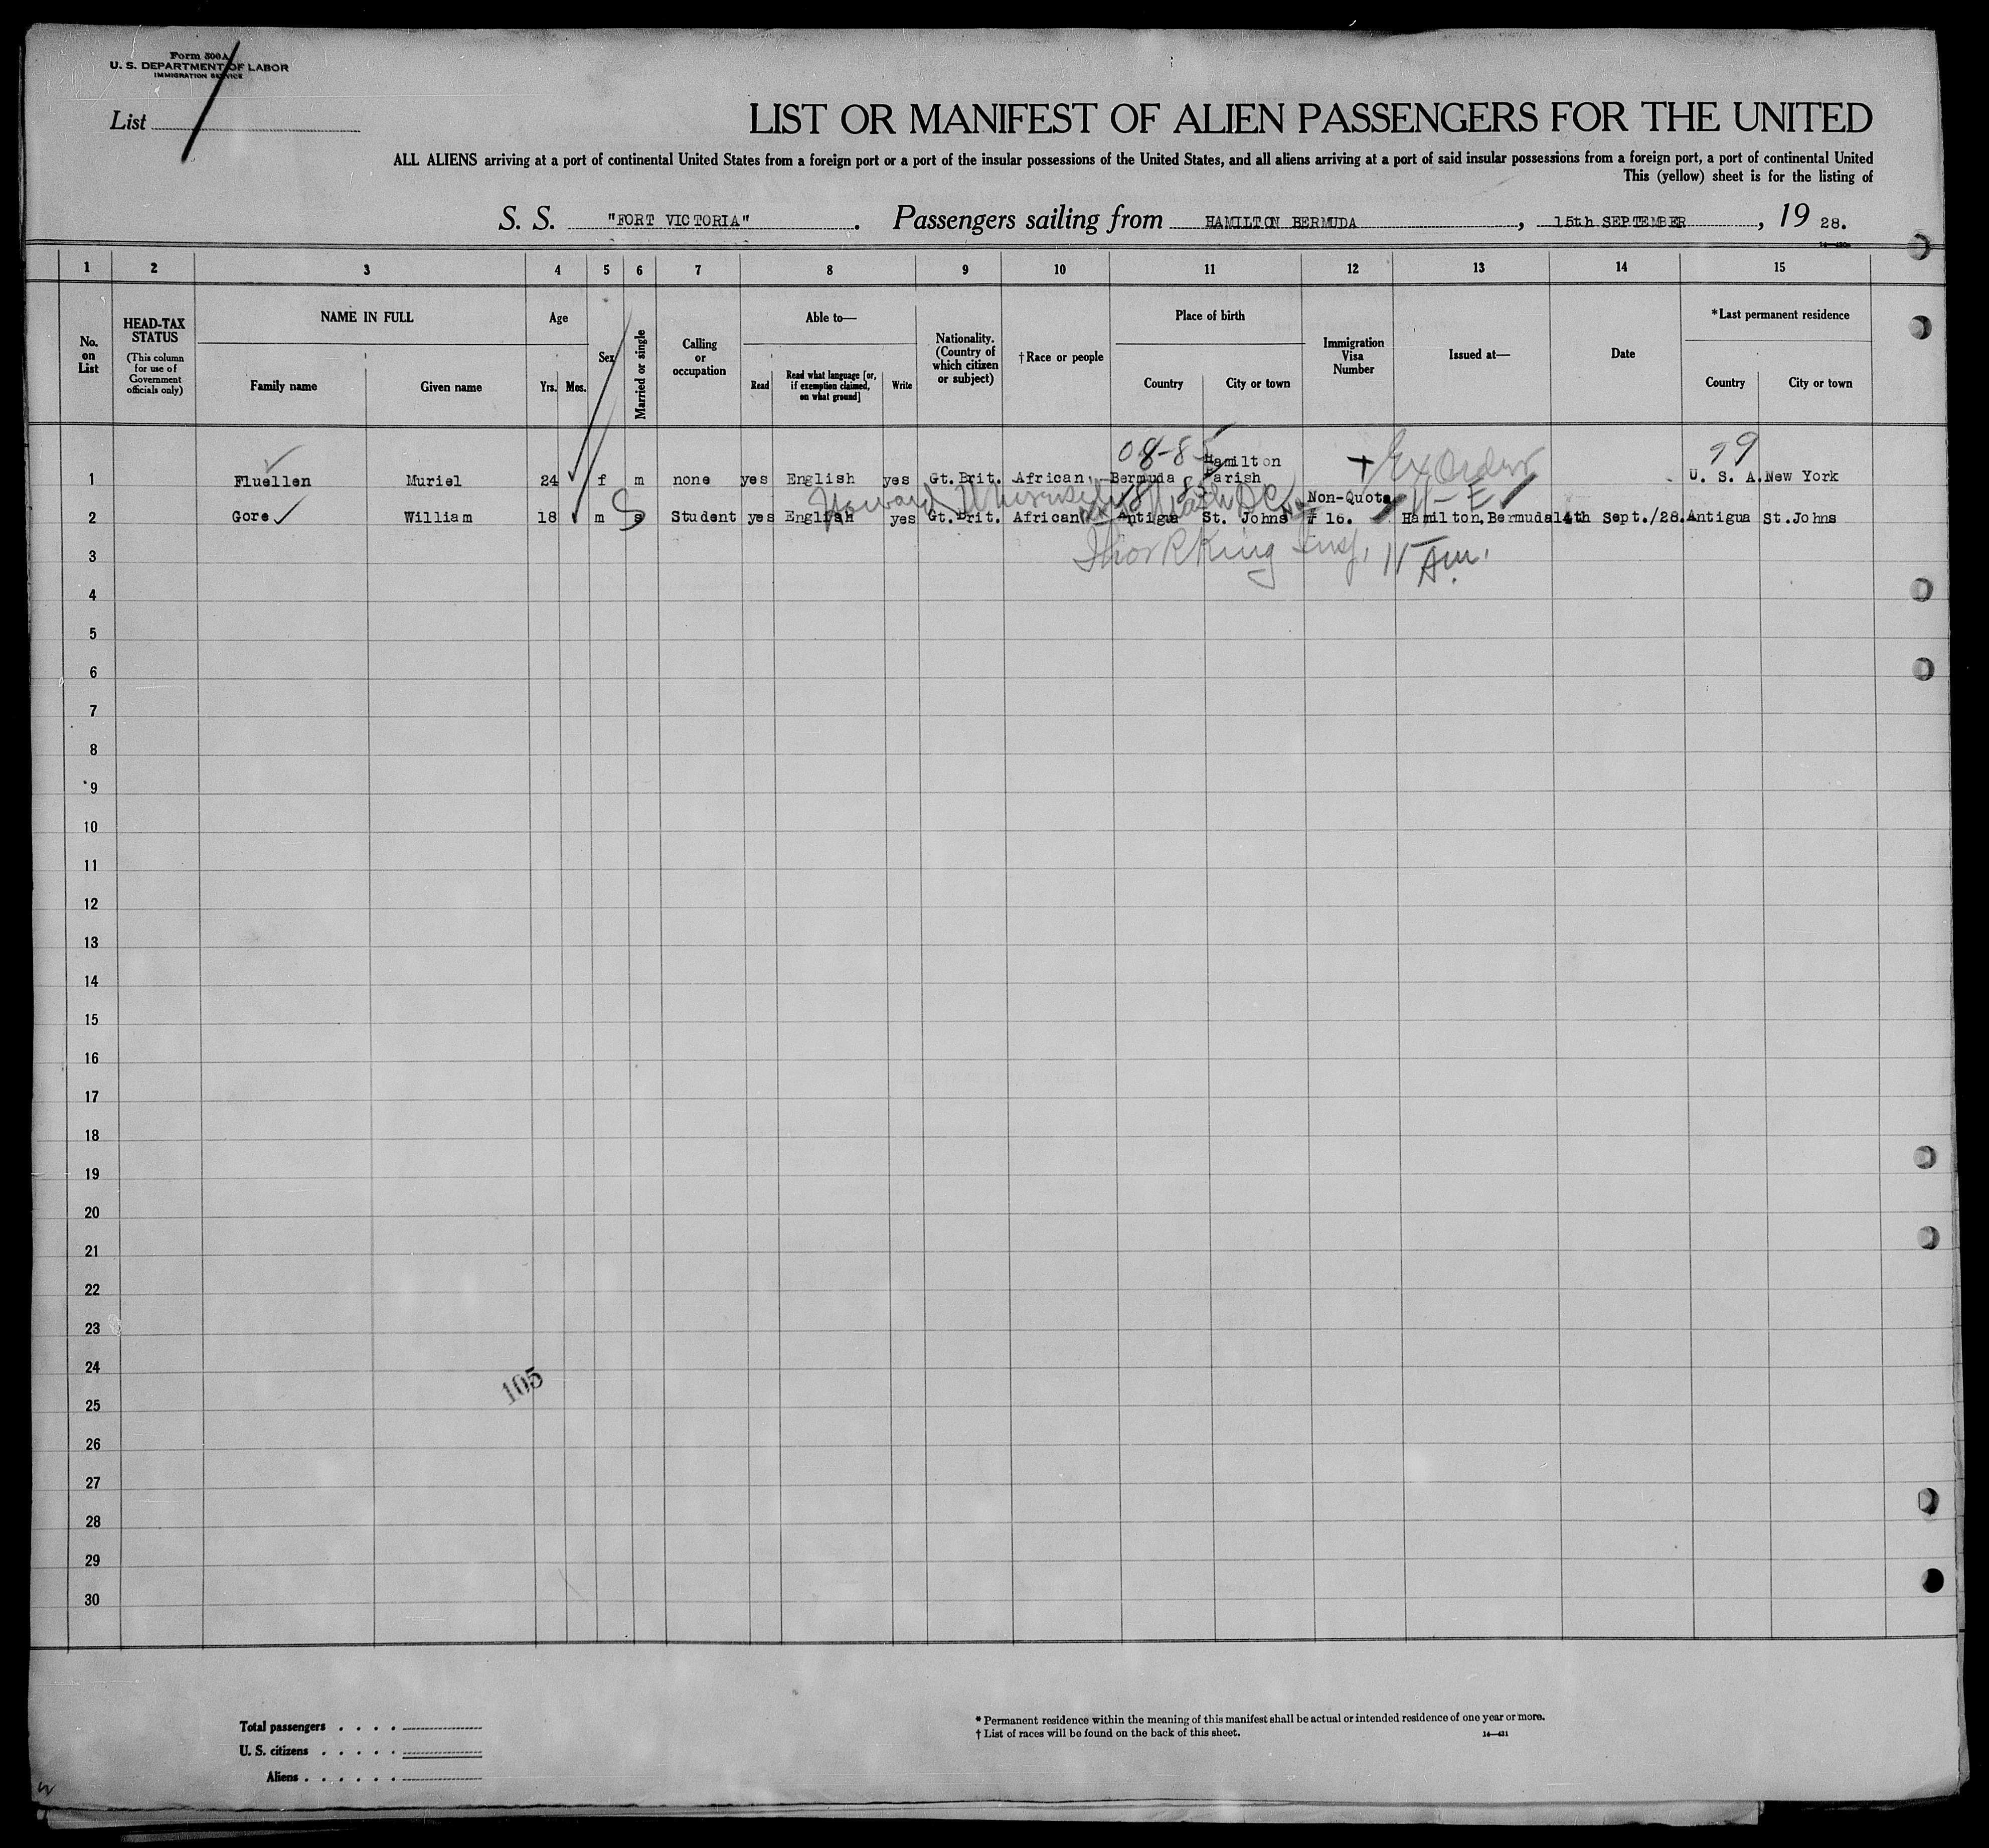 Form 500A
U. S. DEPARTMENT OF LABOR
IMMIGRATION SERVICE
List
LIST OR MANIFEST OF ALIEN PASSENGERS FOR THE UNITED
ALL ALIENS arriving at a port of continental United States from a foreign port or a port of the insular possessions of the United States, and all aliens arriving at a port of said insular possessions from a foreign port, a port of continental United
This (yellow) sheet is for the listing of
S. S. "FORT VICTORIA". Passengers sailing from HAMILTON BERMUDA, 15th SEPTEMBER, 19 28.
1 2 3 4 5 6 7 8 9 10 11 12 13 14 15
No. on List
HEAD-TAX STATUS
(This column for use of Government officials only)
NAME IN FULL
Family name
Given name
Age
Yrs. Mos.
Sex
Married or single
Calling or occupation
Able to—
Read
Read what language [or, if exemption claimed, on what ground]
Write
Nationality. (Country of which citizen or subject)
†Race or people
Place of birth
Country
City or town
Immigration Visa Number
Issued at—
Date
*Last permanent residence
Country
City or town
08-85
99
Ex Order
1 Fluellen Muriel 24 f m none yes English yes Gt.Brit. African Bermuda Hamilton Parish U. S. A. New York
Howard University Wash DC
2 Gore William 18 m s Student yes English yes Gt.Brit. African Antigua St. Johns Non-Quota # 16. Hamilton, Bermuda 14th Sept./28. Antigua St.Johns
S
3
King Insp.
4
5
6
7
8
9
10
11
12
13
14
15
16
17
18
19
20
21
22
23
24
105
25
26
27
28
29
30
Total passengers . . . .
U. S. citizens . . . . .
Aliens . . . . . .
* Permanent residence within the meaning of this manifest shall be actual or intended residence of one year or more.
† List of races will be found on the back of this sheet.
14—431